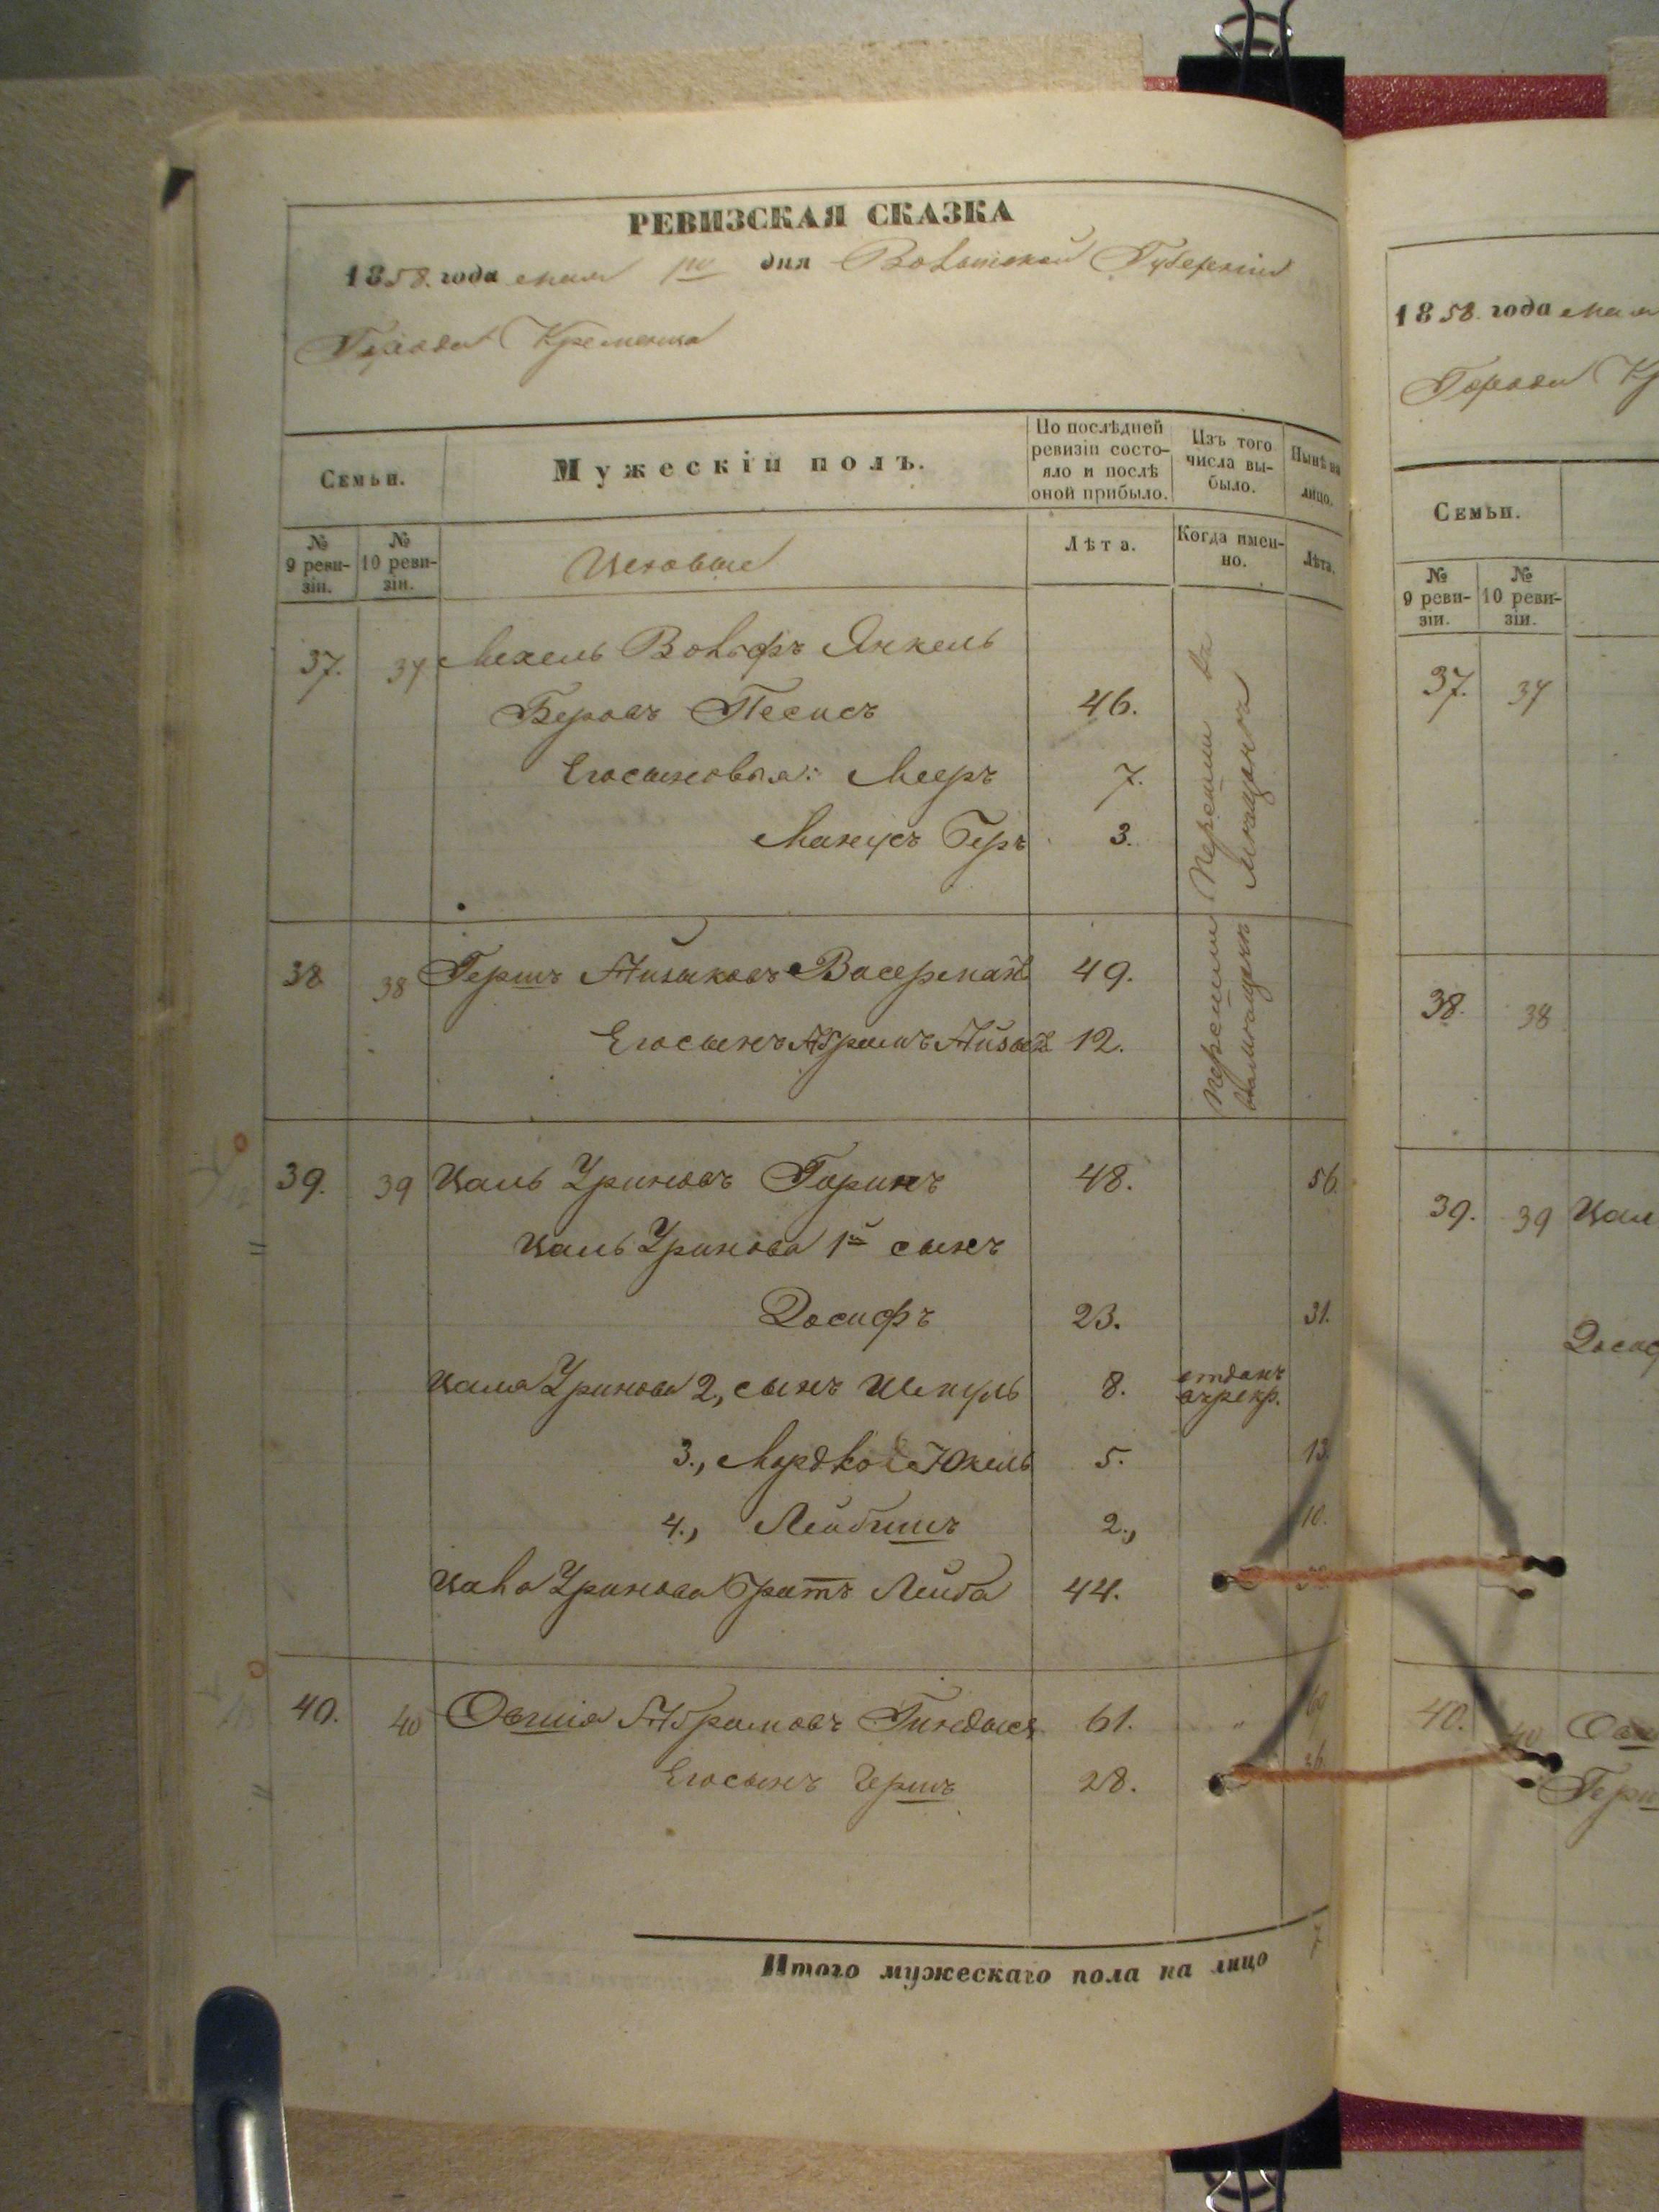 РЕВИЗСКАЯ СКАЗКА
1858. года мая 1го дня Волынской Губерніи
Города Кременца
Семьи.
Мужескій полъ.
По послѣдней ревизіи состояло и послѣ оной прибыло.
Изъ того числа выбыло.
Нынѣ на лицо.
№ 9 ревизіи.
№ 10 ревизіи.
Цеховые
Лѣта.
Когда именно.
Лѣта.
37. 37 Мехель Вольфъ Янкель
Беровъ Песисъ 46.
Его сыновья: Мееръ 7.
Манусъ Беръ 3.
Перешли въ мещанъ
38 38 Гершъ Айзиковъ Васерманъ 49.
Его сынъ Абрамъ Айзикъ 12.
Перешли въ мещанъ
39. 39 Цаль Уриновъ Горинъ 48. 56.
Цаль Уринова 1й сынъ
Іосифъ 23. 31.
Цаля Уринова 2, сынъ Шмуль 8. отданъ въ рекр.
3., Мордко Юкель 5. 13.
4., Лейбишъ 2., 10.
Цаля Уринова братъ Лейба 44.
40. 40 Овшія Абрамовъ 61. " 69
Его сынъ Гершъ 28. 36.
Итого мужескаго пола на лицо 7
1858. года мая
Города Кр
Семьи.
№ 9 ревизіи.
№ 10 ревизіи.
37. 37
38. 38
39. 39 Цал
40. 40 Овш
Герш